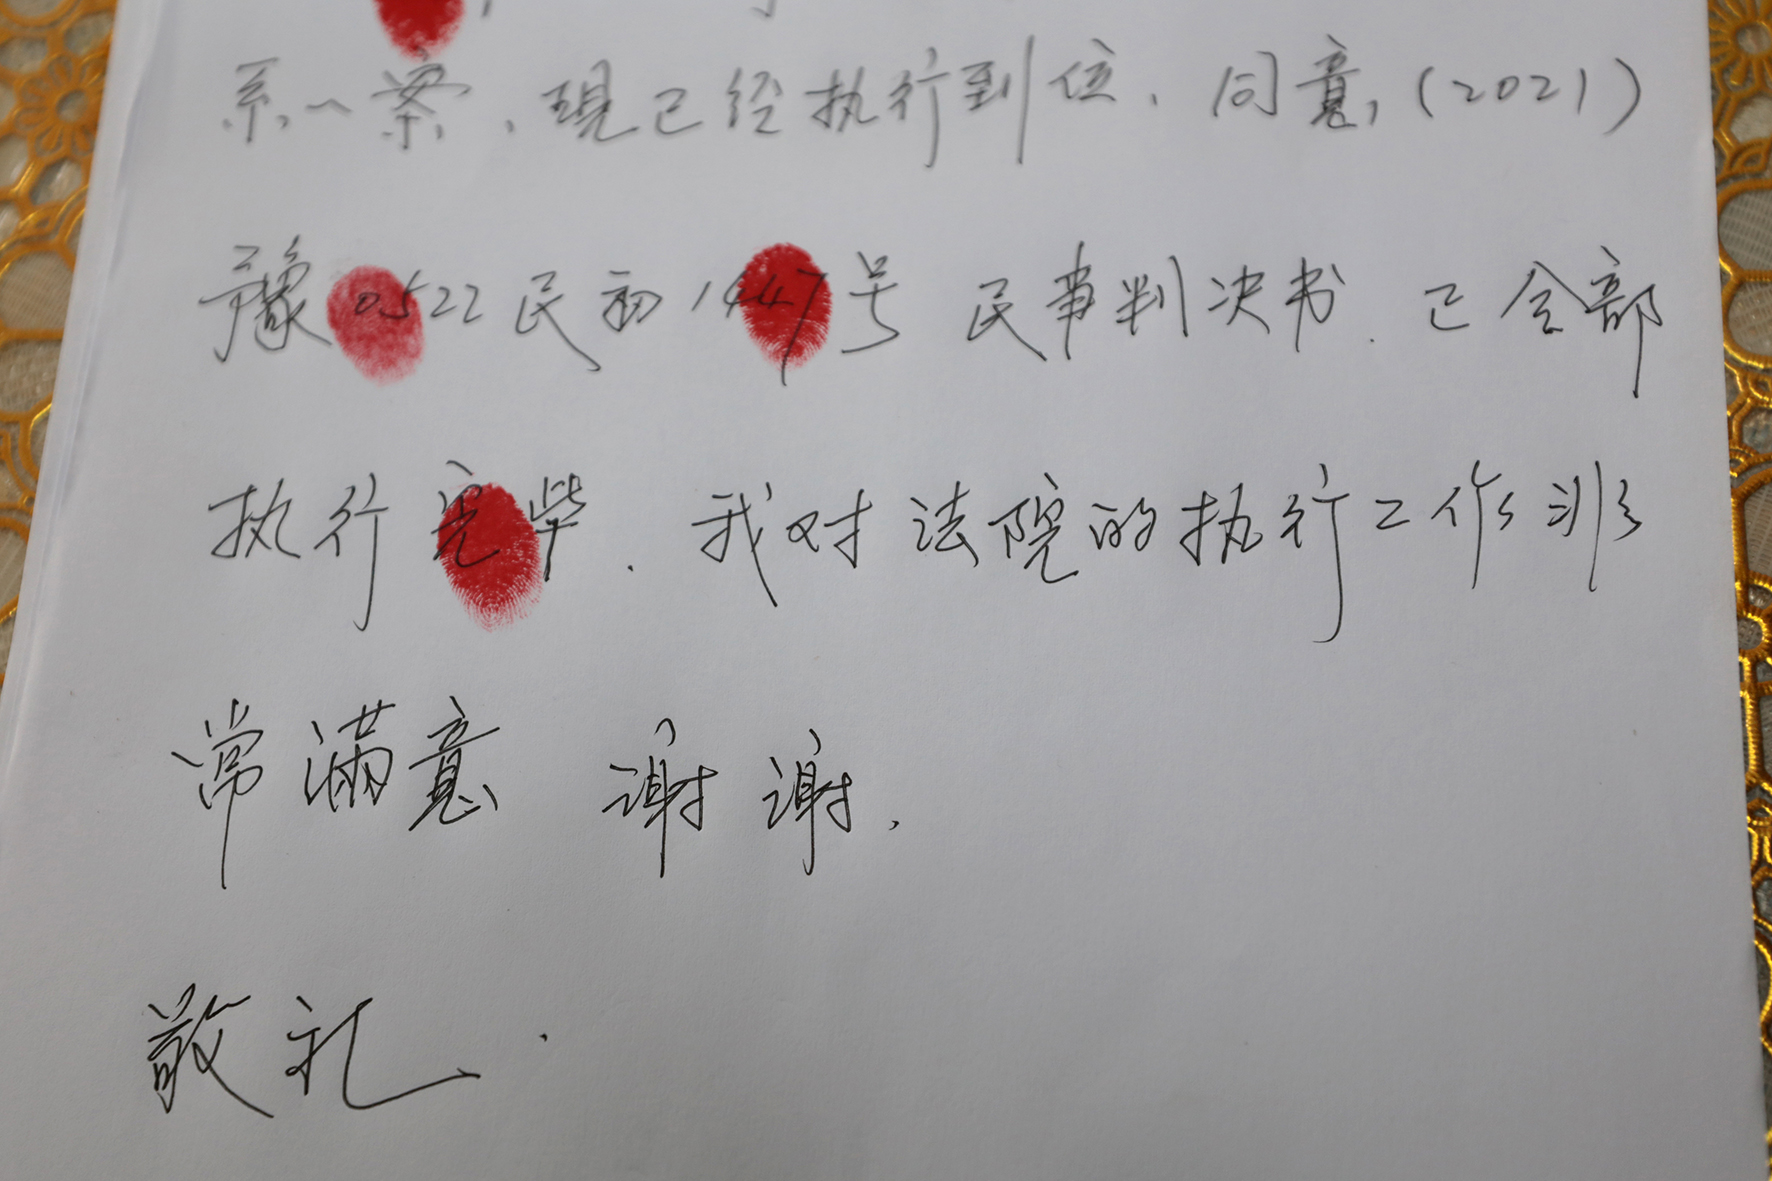 系一案，现已经执行到位，同意，(2021)
豫0522民初1447号 民事判决书．已全部
执行完毕．我对法院的执行工作非
常满意 谢谢．
敬礼．